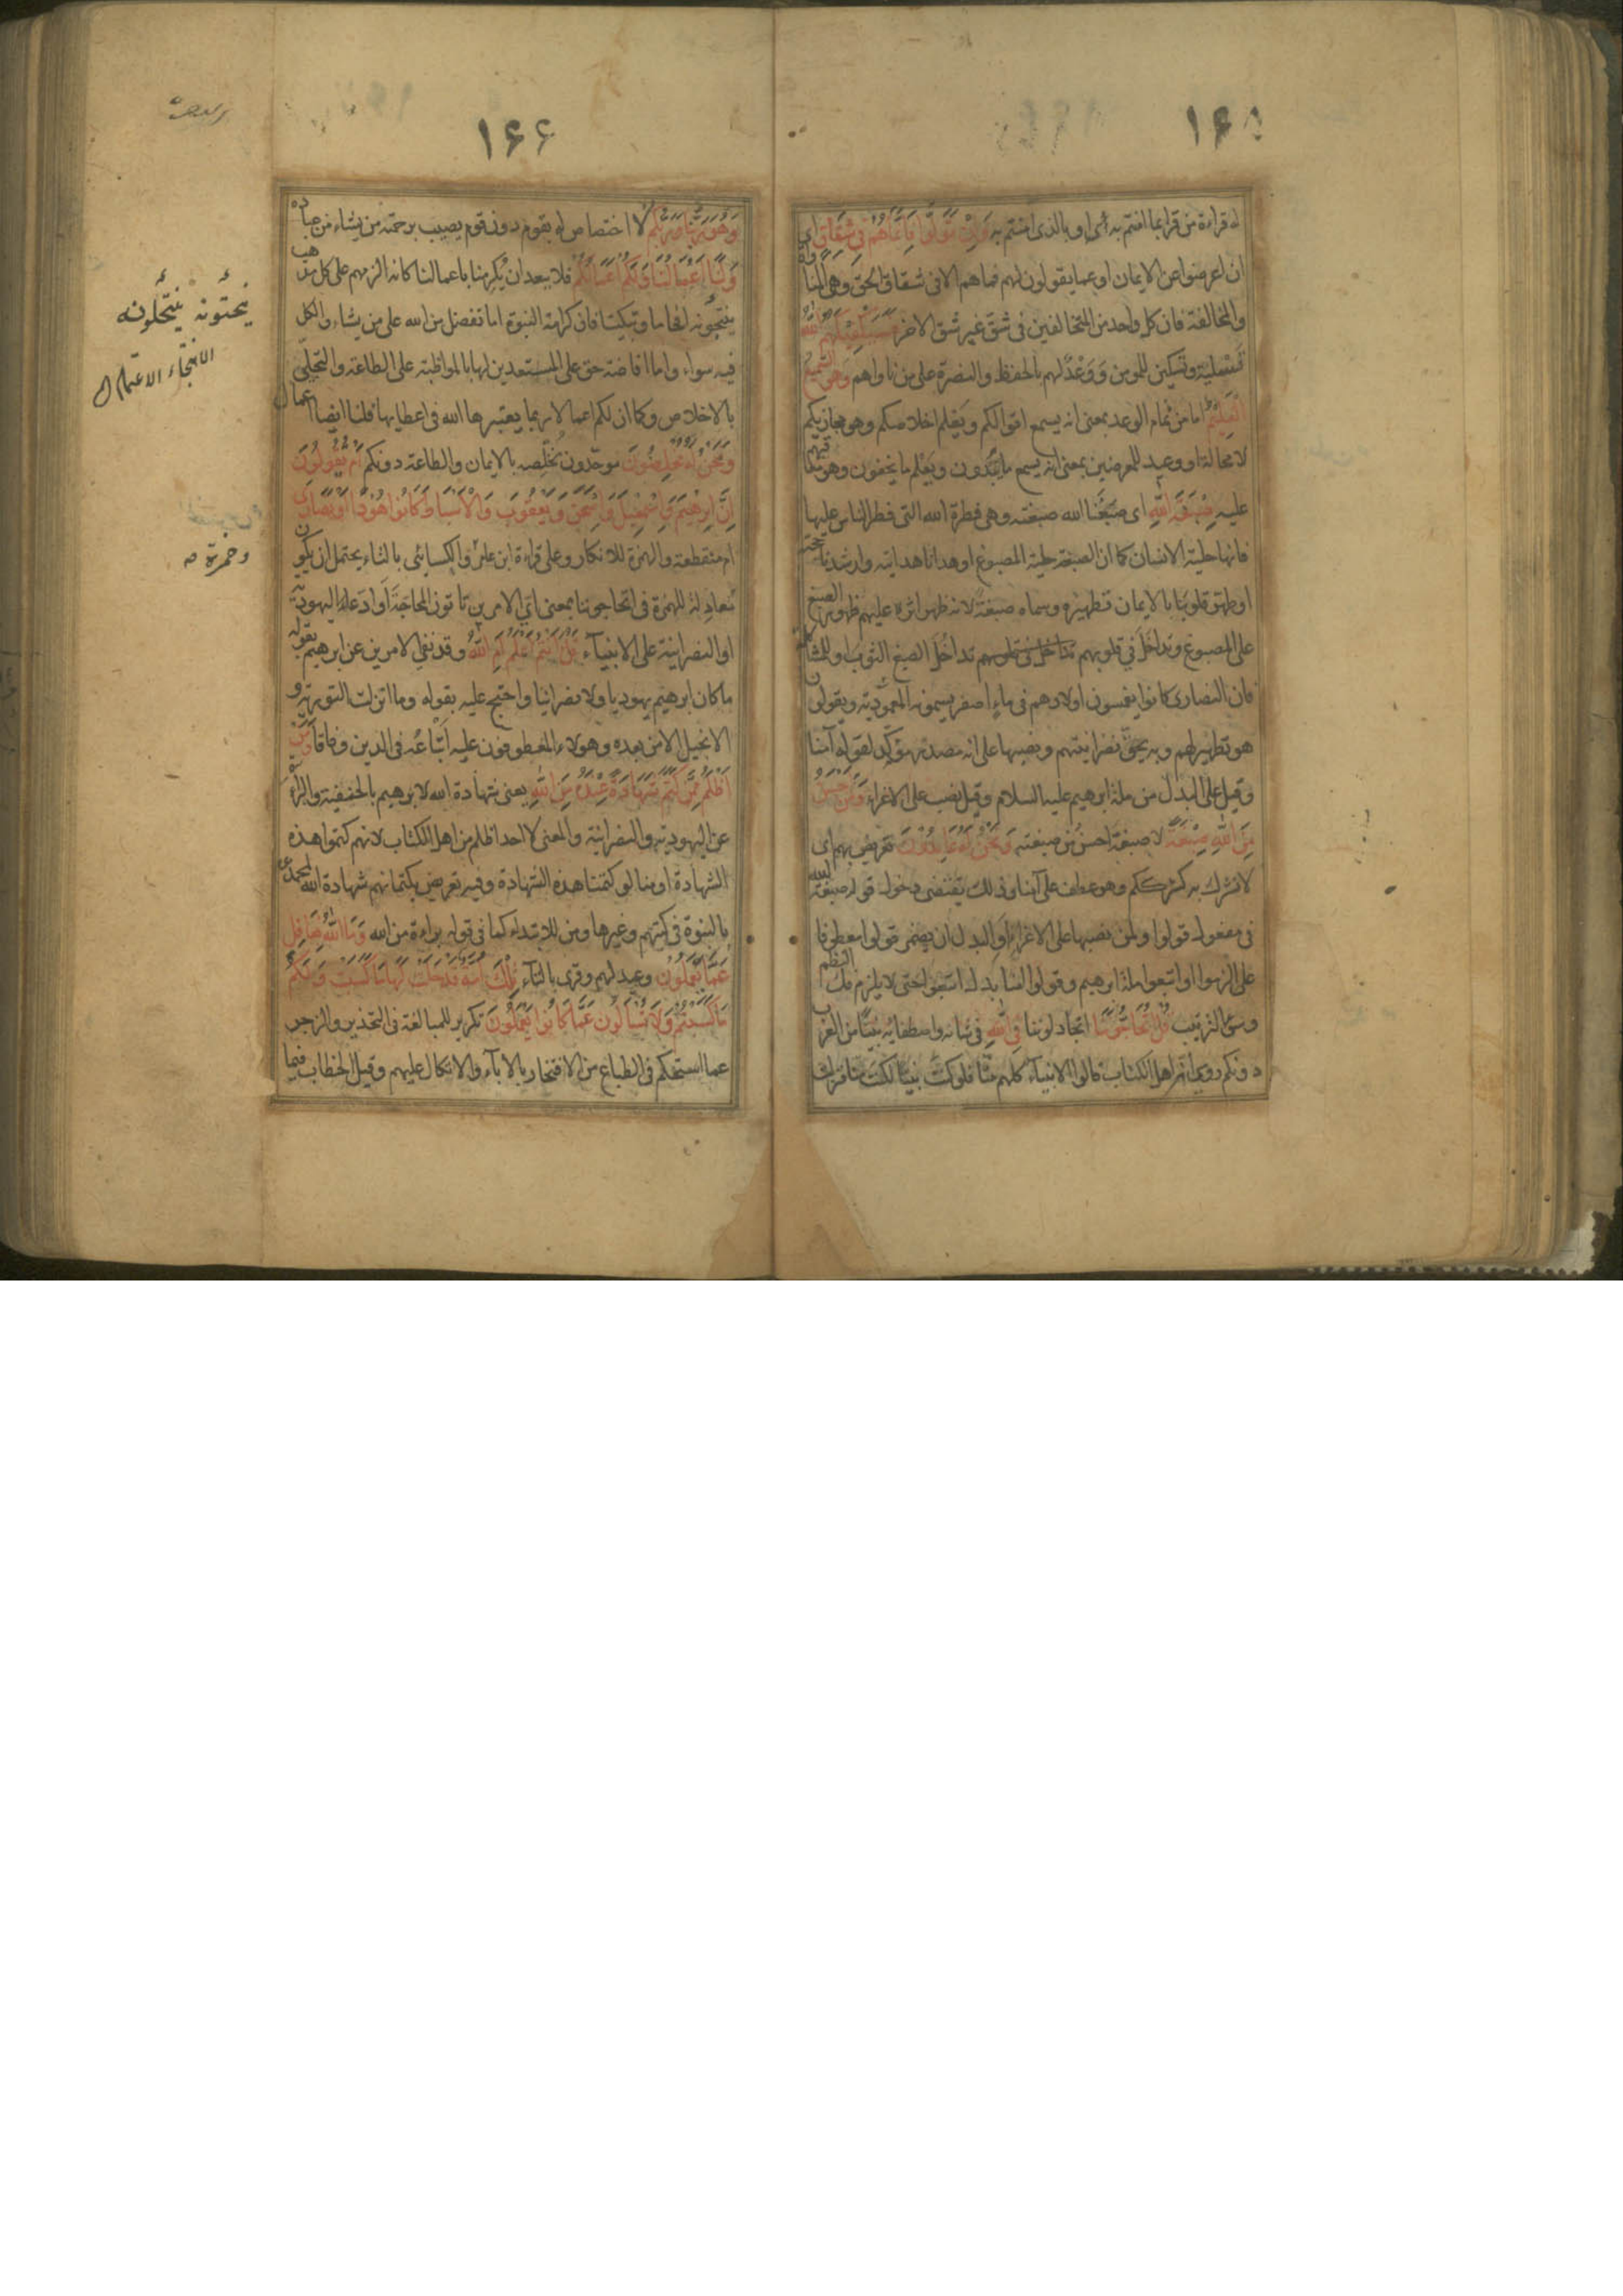 ۱۶۵
له قراءة من قرأ بما امنتم به أى او بالذى امنتم به وَاِنْ تَوَلَّوْا فَاِنَّمَا هُمْ فِى شِقَاقٍ اى
ان اعرضوا عن الايمان او عما يقولون لهم فما هم الا فى شقاق الحق وهى المناواة
والمخالفة فان كل واحد من المتخالفين فى شق غير شق الاخر فَسَيَكْفِيكَهُمُ اللّٰهُ
تسلية وتسكين للمومنين ووعد لهم بالحفظ والنصرة على من ناواهم وَهُوَ السَّمِيعُ
الْعَلِيمُ اما من تمام الوعد بمعنى انه يسمع اقوالكم ويعلم اخلاصكم وهو مجازيكم
لا محالة او وعيد للمعرضين بمعنى انه يسمع ما يبدون ويعلم ما يخفون وهو معاقبهم
عليه صِبْغَةَ اللّٰهِ اى صبغنا الله صبغته وهى فطرة الله التى فطر الناس عليها
فانها حلية الانسان كما ان الصبغة حلية المصبوغ او هدانا هدايته وارشدنا حجته
او طهر قلوبنا بالايمان تطهيره وسماه صبغة لانه ظهر اثره عليهم ظهور الصبغ
على المصبوغ وتداخل فى قلوبهم تداخل الصبغ الثوب او للمشاكلة
فان النصارى كانوا يغمسون اولادهم فى ماء اصفر يسمونه المعمودية ويقولون
هو تطهير لهم وبه يحق نصرانيتهم ونصبها على انه مصدر مؤكد لقوله آمنا
وقيل على البدل من ملة ابرهيم عليه السلام وقيل نصب على الاغراء وَمَنْ اَحْسَنُ
مِنَ اللّٰهِ صِبْغَةً لا صبغة احسن من صبغته وَنَحْنُ لَهُ عَابِدُونَ تعريض بهم اى
لا نشرك به كشرككم وهو عطف على آمنا وذلك يقتضى دخول قوله صبغة الله
فى مفعول قولوا ولمن نصبها على الاغراء او البدل ان يضمر قولوا معطوفا
على الزموا او اتبعوا ملة ابرهيم وقولوا امنا بدل اتبعوا حتى لا يلزم فك النظم
وسوء الترتيب قُلْ اَتُحَاجُّونَنَا اتجادلوننا فِى اللّٰهِ فى شانه واصطفائه نبيا من العرب
دونكم روى ان اهل الكتاب قالوا الانبياء كلهم منا فلو كنت نبيا لكنت منا فنزلت
۱۶۶
وَهُوَ رَبُّنَا وَرَبُّكُمْ لا اختصاص له بقوم دون قوم يصيب برحمته من يشاء من عباده
وَلَنَا اَعْمَالُنَا وَلَكُمْ اَعْمَالُكُمْ فلا يبعد ان يكرمنا باعمالنا كانه الزمهم على كل مذهب
ينتحونه افحاما وتبكيتا فان كرامة النبوة اما تفضل من الله على من يشاء والكل
فيه سواء واما افاضة حق على المستعدين لها بالمواظبة على الطاعة والتحلى
بالاخلاص وكما ان لكم اعمالا ربما يعتبرها الله فى اعطائها فلنا ايضا اعمال
وَنَحْنُ لَهُ مُخْلِصُونَ موحدون نخلصه بالايمان والطاعة دونكم اَمْ يَقُولُونَ
اِنَّ اِبْرٰهِيمَ وَاِسْمٰعِيلَ وَاِسْحٰقَ وَيَعْقُوبَ وَالْاَسْبَاطَ كَانُوا هُودًا اَوْ نَصَارٰى
ام منقطعة والهمزة للانكار وعلى قراءة ابن عامر والكسائى بالتاء يحتمل ان يكون
معادلة للهمزة فى اتحاجوننا بمعنى اى الامرين تاتون المحاجة او ادعاء اليهودية
او النصرانية على الانبياء قُلْ ءَاَنْتُمْ اَعْلَمُ اَمِ اللّٰهُ وقد نفى الامرين عن ابرهيم بقوله
ما كان ابرهيم يهوديا ولا نصرانيا واحتج عليه بقوله وما انزلت التورية و
الانجيل الا من بعده وهولاء المعطوفون عليه اتباعه فى الدين وفاقا وَمَنْ
اَظْلَمُ مِمَّنْ كَتَمَ شَهَادَةً عِنْدَهُ مِنَ اللّٰهِ يعنى شهادة الله لابرهيم بالحنيفية والبراءة
عن اليهودية والنصرانية والمعنى لا احد اظلم من اهل الكتاب لانهم كتموا هذه
الشهادة او منا لو كتمنا هذه الشهادة وفيه تعريض بكتمانهم شهادة الله لمحمد
بالنبوة فى كتبهم وغيرها ومن للابتداء كما فى قوله براءة من الله وَمَا اللّٰهُ بِغَافِلٍ
عَمَّا تَعْمَلُونَ وعيد لهم وقرئ بالتاء تِلْكَ اُمَّةٌ قَدْ خَلَتْ لَهَا مَا كَسَبَتْ وَلَكُمْ
مَا كَسَبْتُمْ وَلَا تُسْاَلُونَ عَمَّا كَانُوا يَعْمَلُونَ تكرير للمبالغة فى التحذير والزجر
عما استحكم فى الطباع من الافتخار بالاباء والاتكال عليهم وقيل الخطاب فيما
ينتحونه ينتحلونه
الانتحاء الاعتماد
وحمزة صه